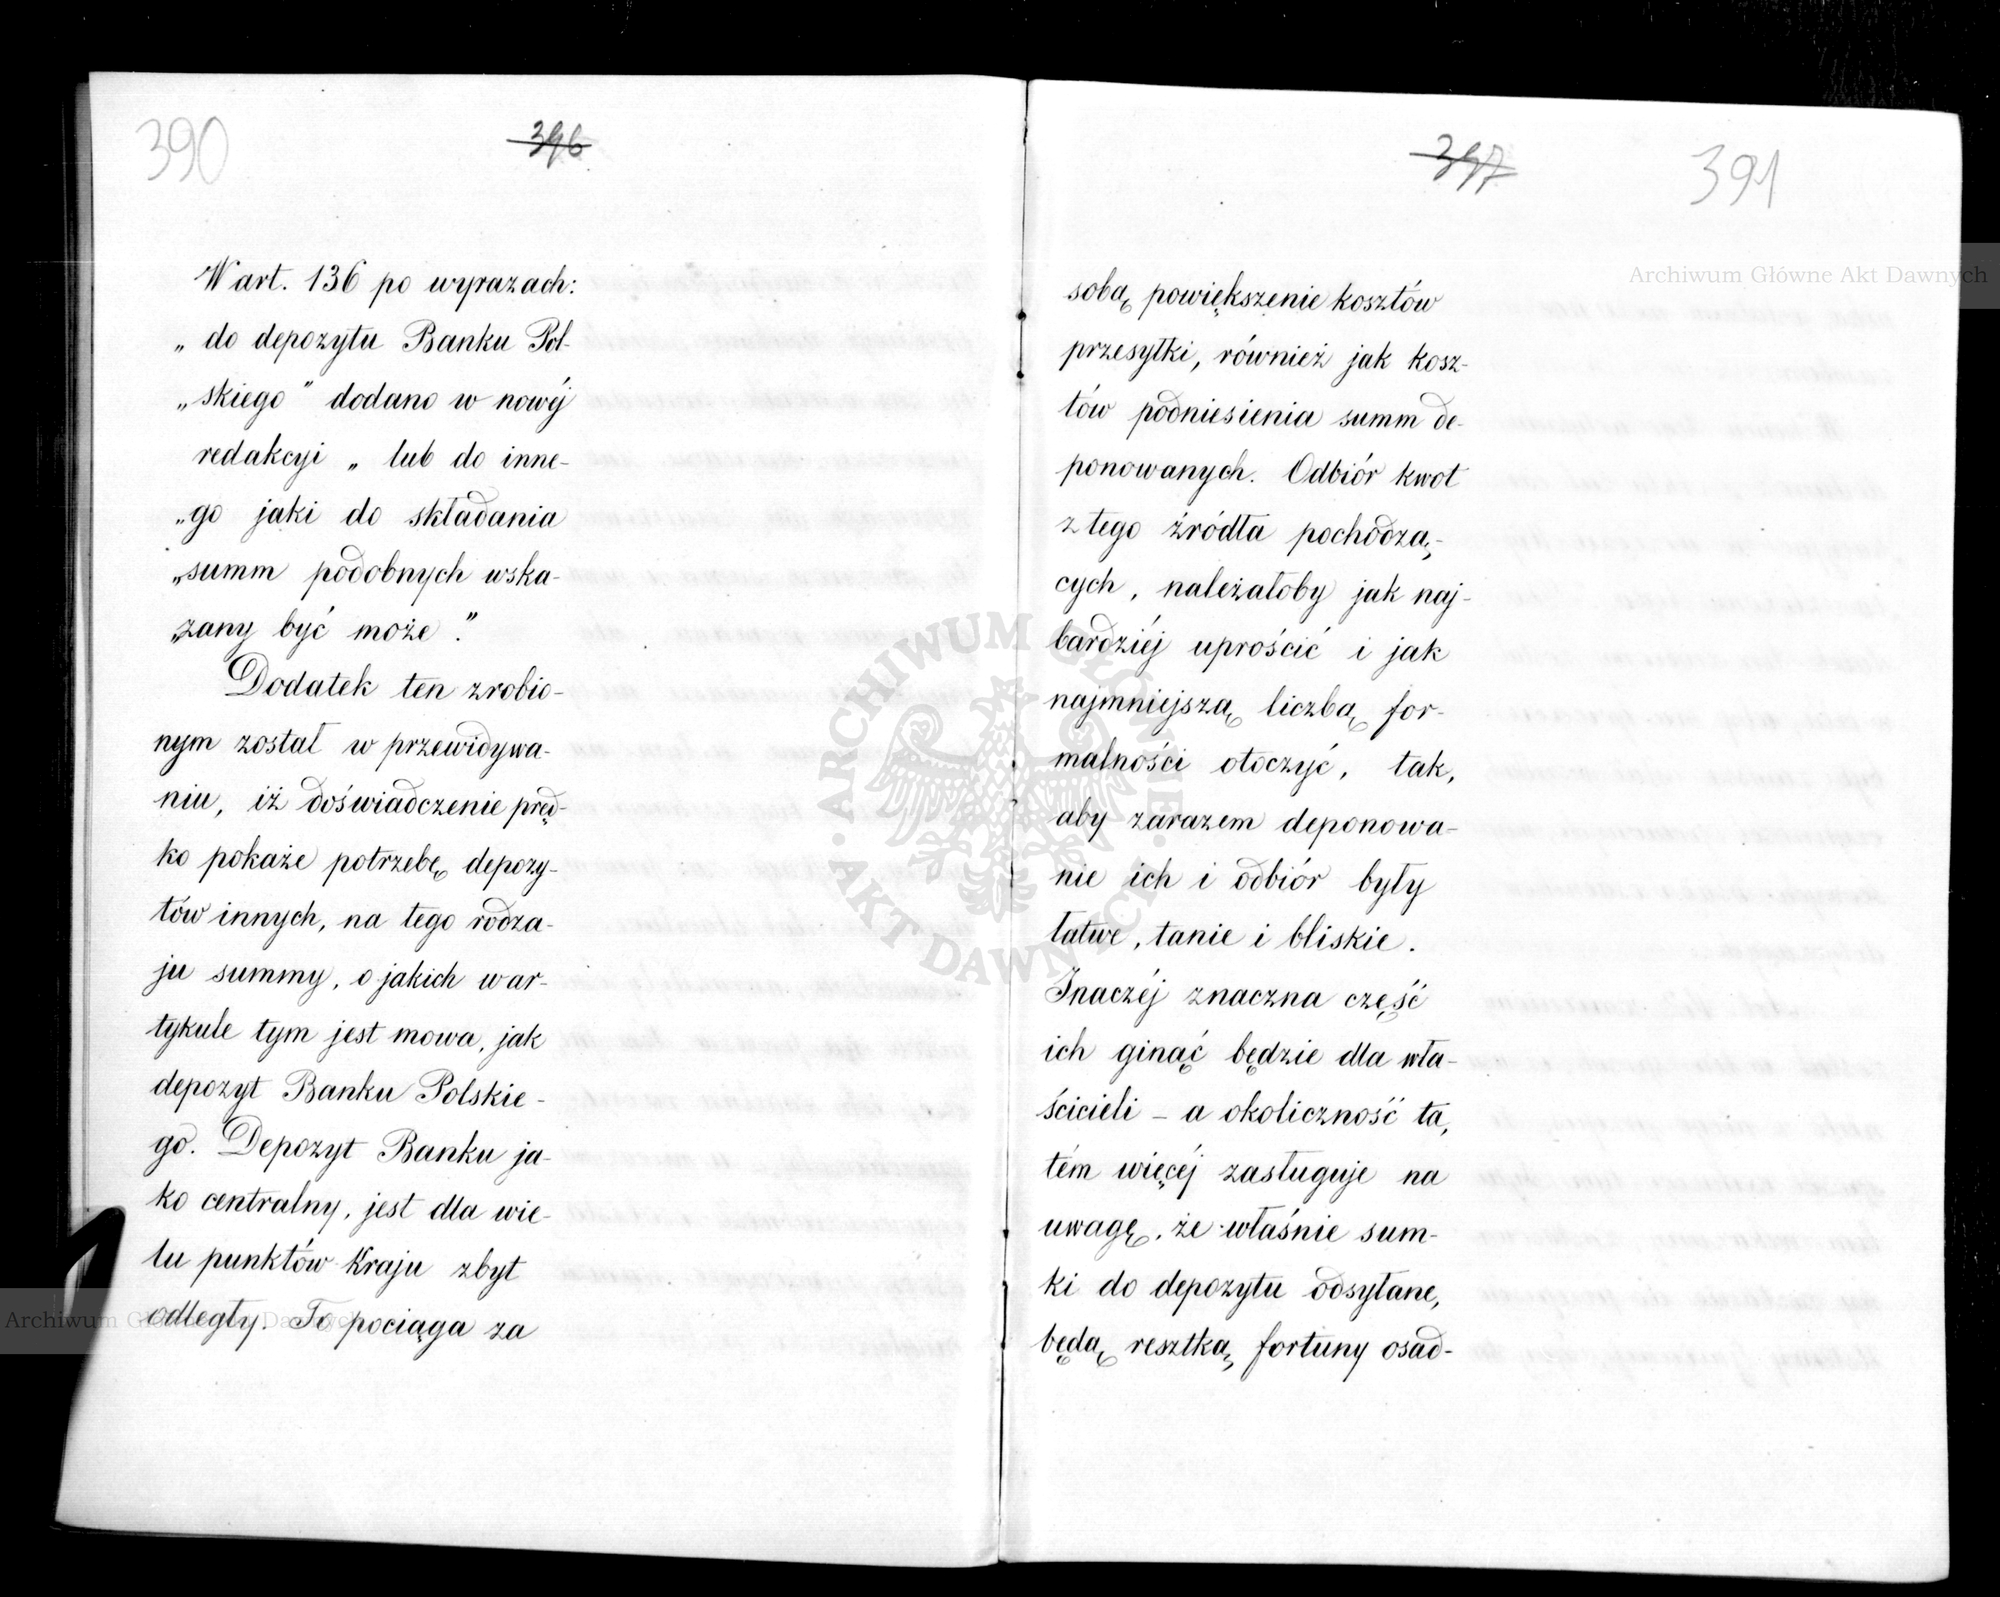 390
396
W art. 136 po wyrazach:
„do depozytu Banku Pol-
„skiego” dodano w nowéj
redakcyi „lub do inne-
„go jaki do składania
„summ podobnych wska-
„zany być może.”
Dodatek ten zrobio-
nym został w przewidywa-
niu, iż doświadczenie pręd-
ko pokaże potrzebę depozy-
tów innych, na tego rodza-
ju summy, o jakich w ar-
tykule tym jest mowa, jak
depozyt Banku Polskie-
go. Depozyt Banku ja-
ko centralny, jest dla wie-
lu punktów Kraju zbyt
odległy. To pociąga za
397
391
sobą powiększenie kosztów
przesyłki, również jak kosz-
tów podniesienia summ de-
ponowanych. Odbiór kwot
z tego źródła pochodzą-
cych, należałoby jak naj-
bardziéj uprościć i jak
najmniejszą liczbą for-
malności otoczyć, tak,
aby zarazem deponowa-
nie ich i odbiór były
łatwe, tanie i bliskie.
Inaczéj znaczna część
ich ginąć będzie dla wła-
ścicieli – a okoliczność ta,
tém więcéj zasługuje na
uwagę, że właśnie sum-
ki do depozytu odsyłane,
będą resztką, fortuny osad-
Archiwum Główne Akt Dawnych
Archiwum Główne Akt Dawnych
ARCHIWUM GŁÓWNE AKT DAWNYCH